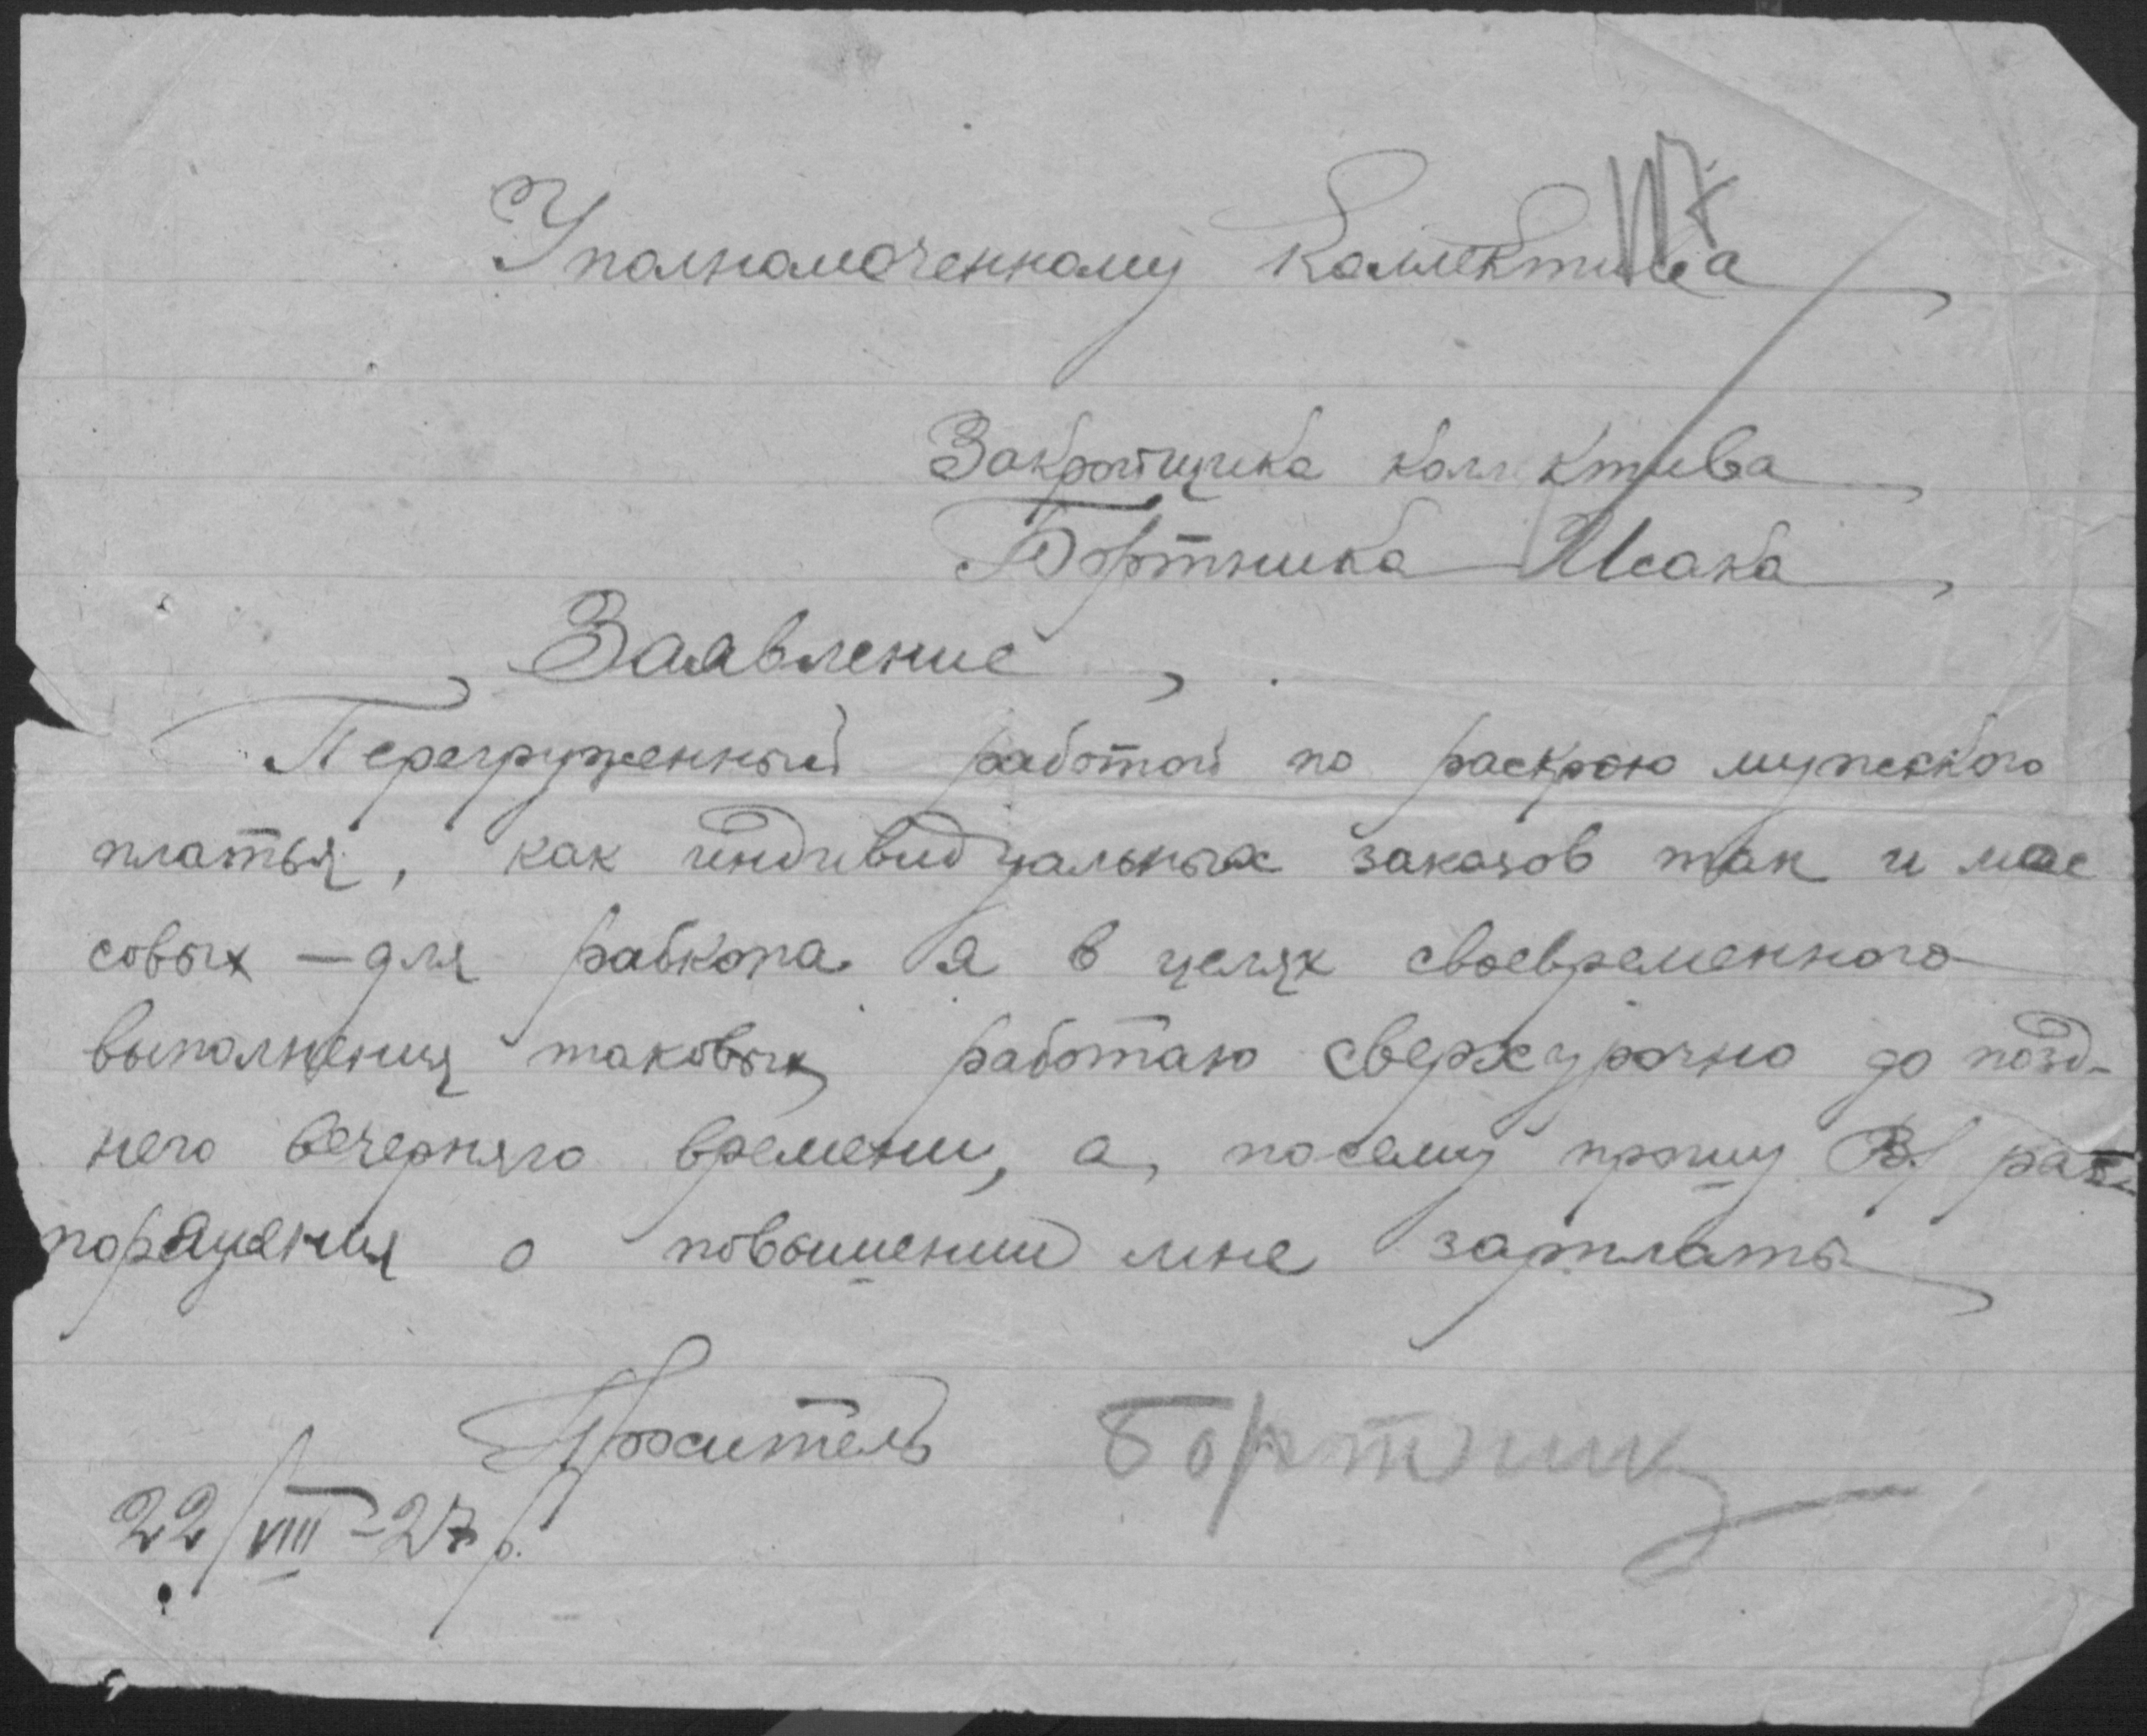 Уполномоченному Коллектива
117
Закройщика коллектива
Бортника Исака
Заявление
Перегруженный работой по раскрою мужского
платья, как индивидуальных заказов так и мас
совых — для рабкопа я в целях своевременного
выполнения таковых работаю сверхурочно до позд-
него вечерняго времени, а, посему прошу В/ рас
поряжения о повышении мне зарплаты
Проситель Бортник
22/VIII-27 г.